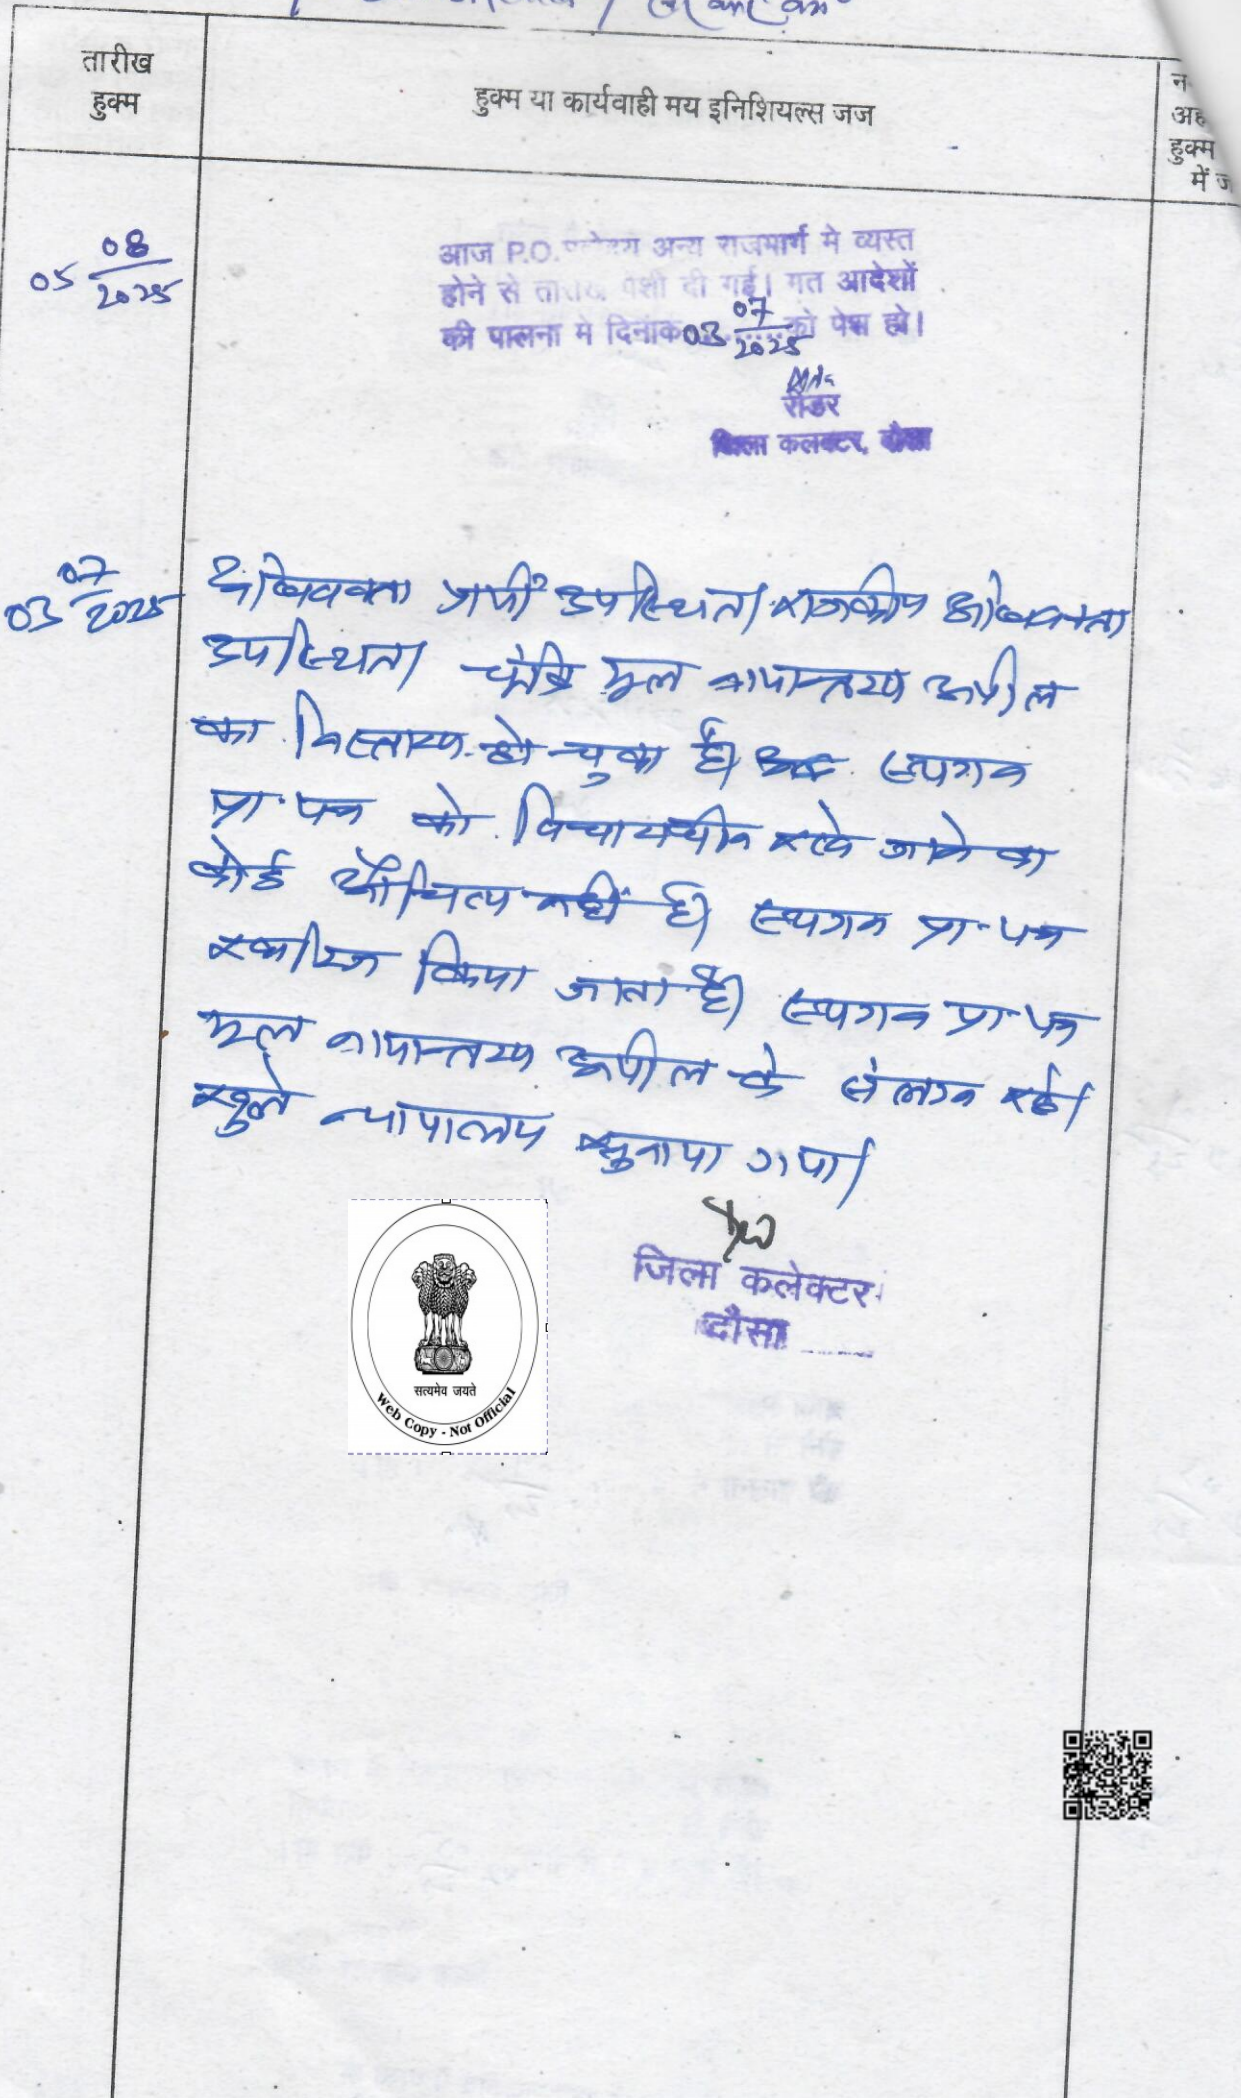 तारीख
हुक्म
हुक्म या कार्यवाही मय इनिशियल्स जज
हुक्म
में
05 08/2025
आज P.O. अन्य राजमार्ग मे व्यस्त
होने से तारीख पेशी दी गई। गत आदेशों
की पालना मे दिनांक 03 07/2025 को पेश हो।
रीडर
जिला कलक्टर, दौसा
03 07/2025
अधिवक्ता प्रार्थी उपस्थित। राजकीय अधिवक्ता
उपस्थित। चूंकि मूल नामान्तरण अपील
का निस्तारण हो चुका है। स्थगन
प्रा. पत्र को विचाराधीन रखे जाने का
कोई औचित्य नहीं है। स्थगन प्रा. पत्र
खारिज किया जाता है। स्थगन प्रा. पत्र
मूल नामान्तरण अपील के संलग्न रहे।
खुले न्यायालय सुनाया गया।
जिला कलेक्टर
दौसा
सत्यमेव जयते
Web Copy - Not Official